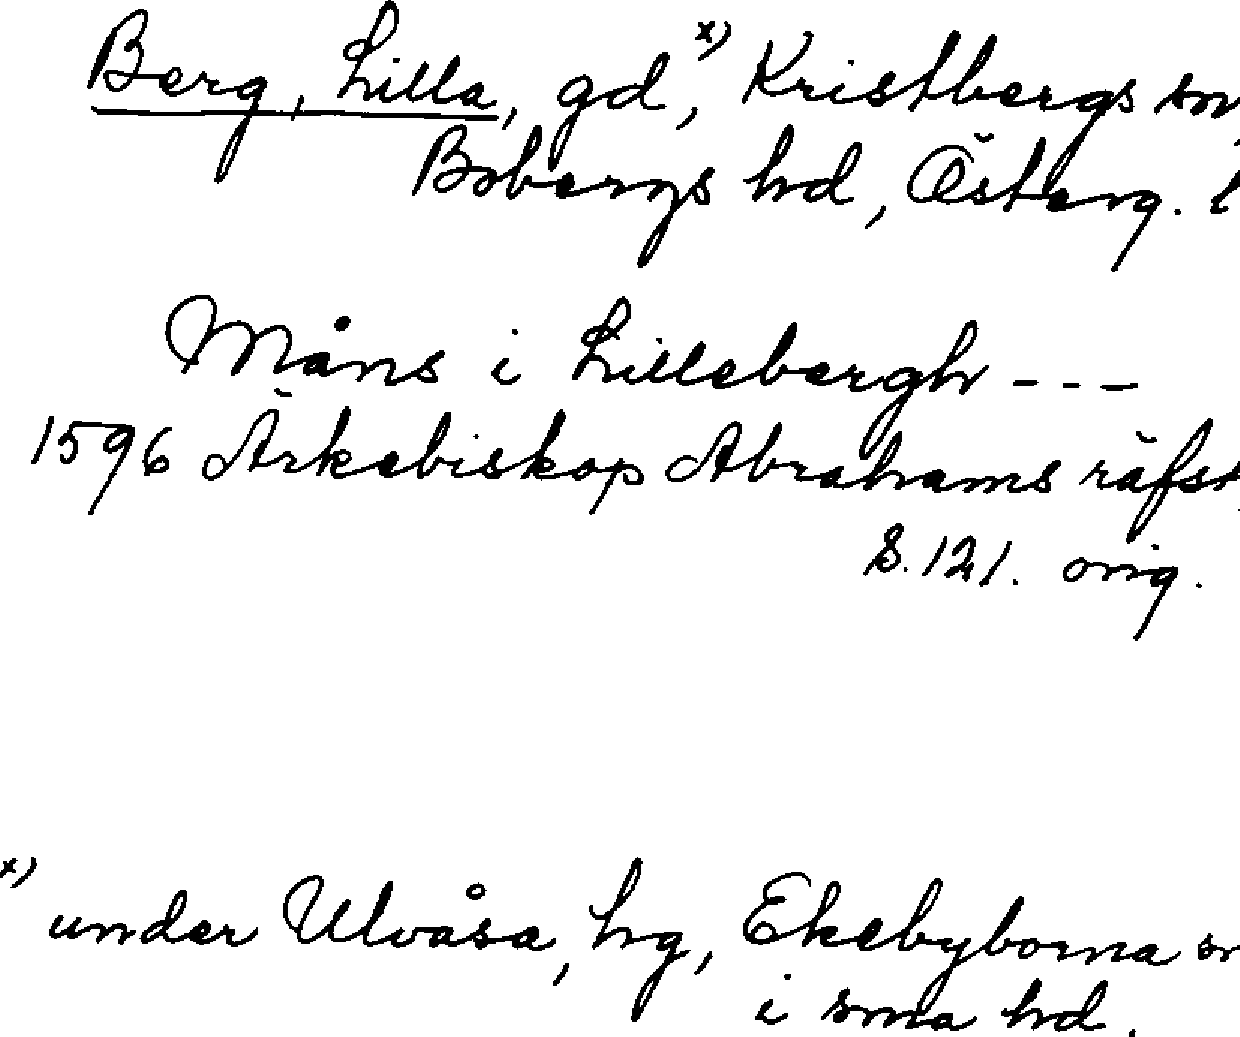 Berg, Lilla, gd,x) Kristbergs sn,
Bobergs hd, Österg. l
Måns i Lillebergh ---
1596 Ärkebiskop Abrahams räfst
S. 121. orig.
x) under Ulvåsa, hg, Ekebyborna sn
i sma hd.